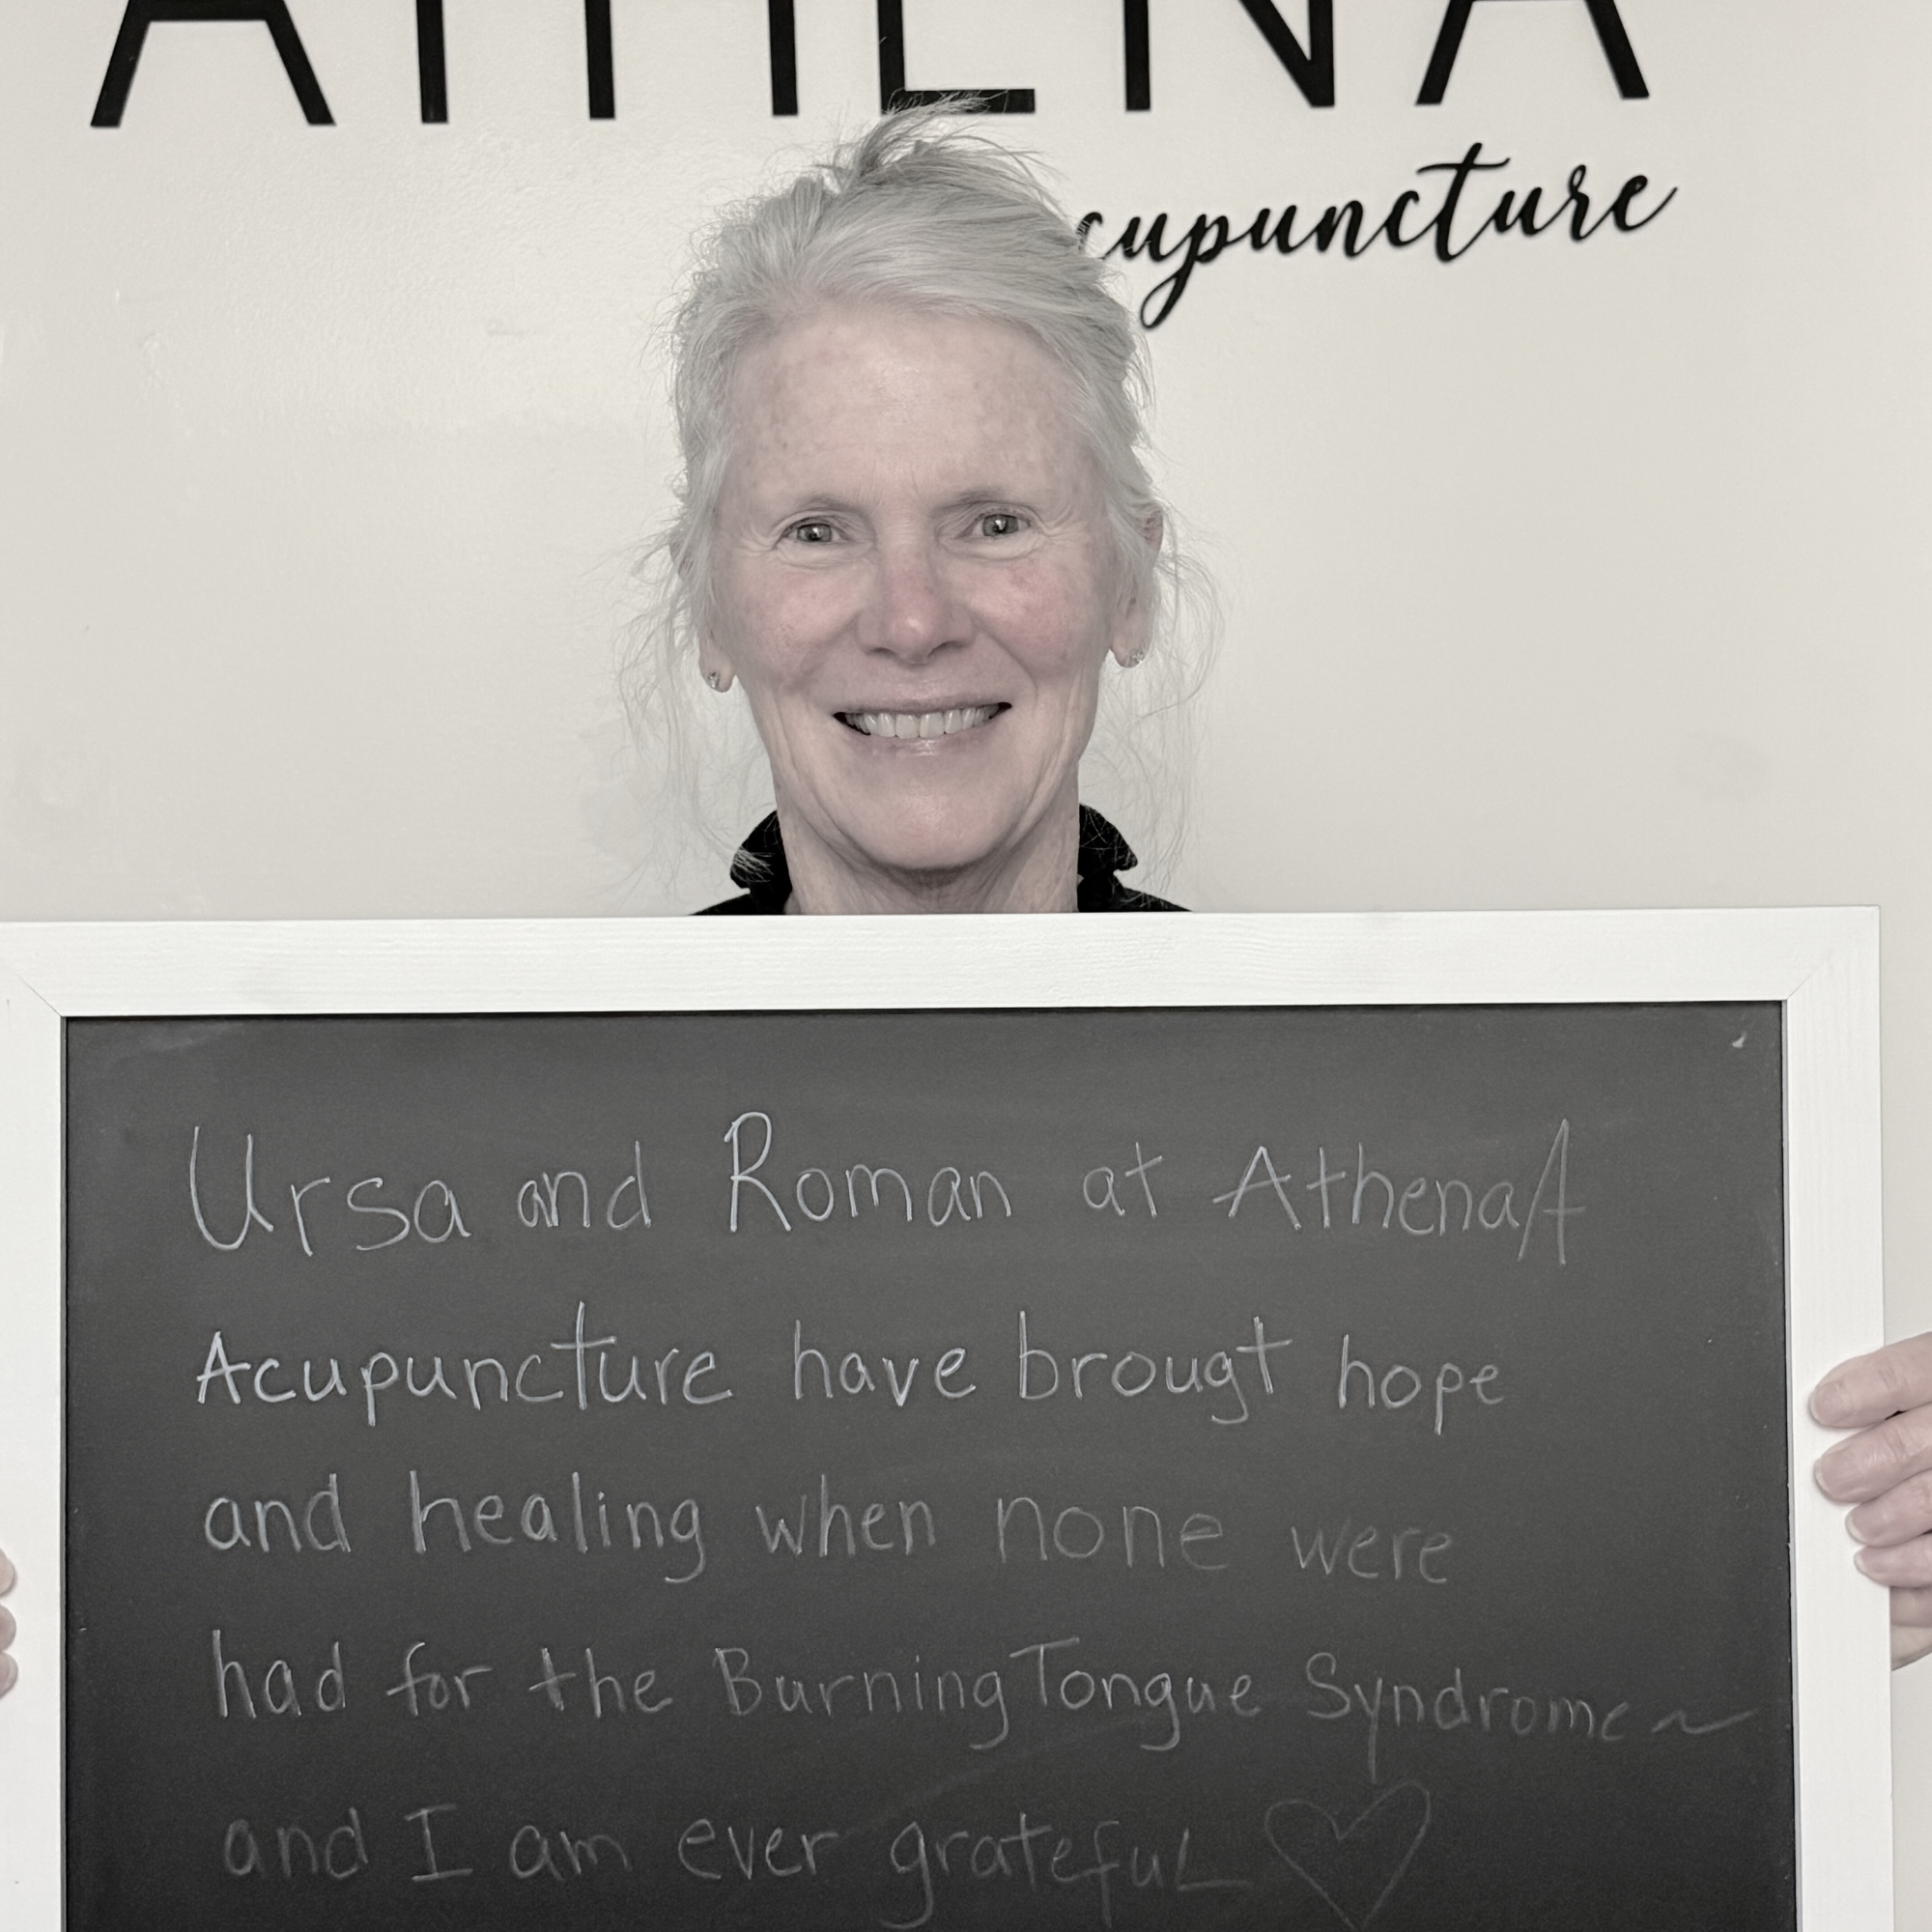 ATHENA
cupuncture
Ursa and Roman at AthenaA
Acupuncture have brougt hope
and healing when none were
had for the Burning Tongue Syndrome ~
and I am ever grateful ♡